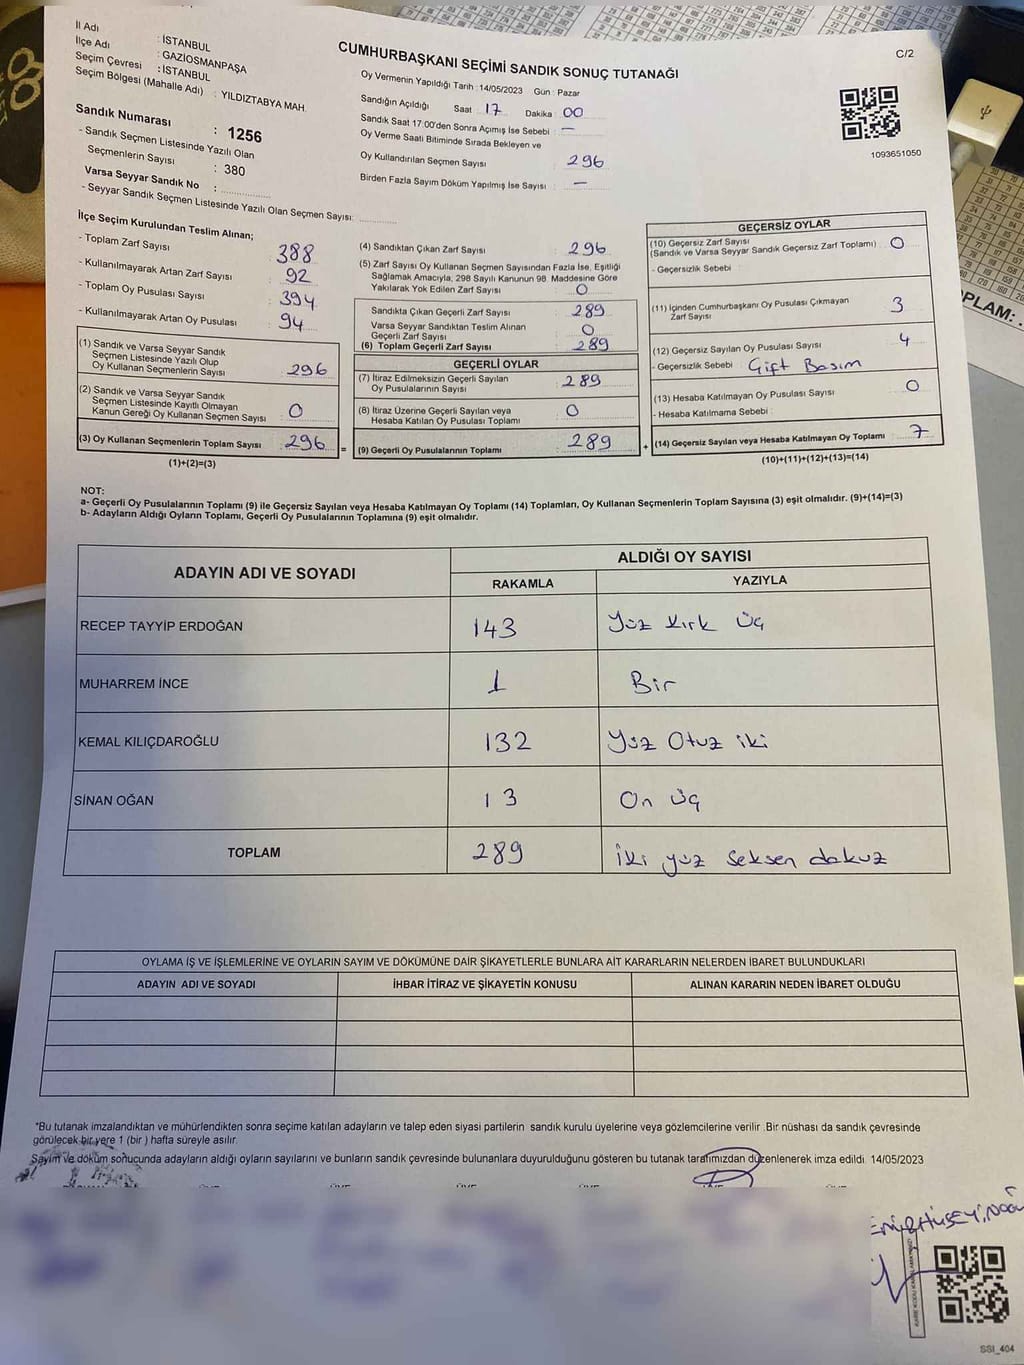 İl Adı : İSTANBUL
İlçe Adı : GAZİOSMANPAŞA
Seçim Çevresi : İSTANBUL
Seçim Bölgesi (Mahalle Adı) : YILDIZTABYA MAH.
Sandık Numarası : 1256
- Sandık Seçmen Listesinde Yazılı Olan
Seçmenlerin Sayısı : 380
Varsa Seyyar Sandık No :
- Seyyar Sandık Seçmen Listesinde Yazılı Olan Seçmen Sayısı:
CUMHURBAŞKANI SEÇİMİ SANDIK SONUÇ TUTANAĞI
C/2
Oy Vermenin Yapıldığı Tarih : 14/05/2023 Gün : Pazar
Sandığın Açıldığı Saat : 17 Dakika : 00
Sandık Saat 17:00'den Sonra Açımış İse Sebebi : —
Oy Verme Saati Bitiminde Sırada Bekleyen ve
Oy Kullandırılan Seçmen Sayısı : 296
Birden Fazla Sayım Döküm Yapılmış İse Sayısı : —
1093651050
İlçe Seçim Kurulundan Teslim Alınan;
- Toplam Zarf Sayısı : 388
- Kullanılmayarak Artan Zarf Sayısı : 92
- Toplam Oy Pusulası Sayısı : 394
- Kullanılmayarak Artan Oy Pusulası : 94
(1) Sandık ve Varsa Seyyar Sandık
Seçmen Listesinde Yazılı Olup
Oy Kullanan Seçmenlerin Sayısı : 296
(2) Sandık ve Varsa Seyyar Sandık
Seçmen Listesinde Kayıtlı Olmayan
Kanun Gereği Oy Kullanan Seçmen Sayısı : 0
(3) Oy Kullanan Seçmenlerin Toplam Sayısı : 296 =
(1)+(2)=(3)
(4) Sandıktan Çıkan Zarf Sayısı : 296
(5) Zarf Sayısı Oy Kullanan Seçmen Sayısından Fazla İse, Eşitliği
Sağlamak Amacıyla, 298 Sayılı Kanunun 98. Maddesine Göre
Yakılarak Yok Edilen Zarf Sayısı : 0
Sandıkta Çıkan Geçerli Zarf Sayısı : 289
Varsa Seyyar Sandıktan Teslim Alınan
Geçerli Zarf Sayısı : 0
(6) Toplam Geçerli Zarf Sayısı : 289
GEÇERLİ OYLAR
(7) İtiraz Edilmeksizin Geçerli Sayılan
Oy Pusulalarının Sayısı : 289
(8) İtiraz Üzerine Geçerli Sayılan veya
Hesaba Katılan Oy Pusulası Toplamı : 0
(9) Geçerli Oy Pusulalarının Toplamı : 289 +
GEÇERSİZ OYLAR
(10) Geçersiz Zarf Sayısı
(Sandık ve Varsa Seyyar Sandık Geçersiz Zarf Toplamı) : 0
- Geçersizlik Sebebi :
(11) İçinden Cumhurbaşkanı Oy Pusulası Çıkmayan
Zarf Sayısı : 3
(12) Geçersiz Sayılan Oy Pusulası Sayısı : 4
- Geçersizlik Sebebi : Çift Basım
(13) Hesaba Katılmayan Oy Pusulası Sayısı : 0
- Hesaba Katılmama Sebebi :
(14) Geçersiz Sayılan veya Hesaba Katılmayan Oy Toplamı : 7
(10)+(11)+(12)+(13)=(14)
NOT:
a- Geçerli Oy Pusulalarının Toplamı (9) ile Geçersiz Sayılan veya Hesaba Katılmayan Oy Toplamı (14) Toplamları, Oy Kullanan Seçmenlerin Toplam Sayısına (3) eşit olmalıdır. (9)+(14)=(3)
b- Adayların Aldığı Oyların Toplamı, Geçerli Oy Pusulalarının Toplamına (9) eşit olmalıdır.
ADAYIN ADI VE SOYADI ALDIĞI OY SAYISI
RAKAMLA YAZIYLA
RECEP TAYYİP ERDOĞAN 143 Yüz Kırk Üç
MUHARREM İNCE 1 Bir
KEMAL KILIÇDAROĞLU 132 Yüz Otuz iki
SİNAN OĞAN 13 On üç
TOPLAM 289 İki yüz Seksen dokuz
OYLAMA İŞ VE İŞLEMLERİNE VE OYLARIN SAYIM VE DÖKÜMÜNE DAİR ŞİKAYETLERLE BUNLARA AİT KARARLARIN NELERDEN İBARET BULUNDUKLARI
ADAYIN ADI VE SOYADI İHBAR İTİRAZ VE ŞİKAYETİN KONUSU ALINAN KARARIN NEDEN İBARET OLDUĞU
*Bu tutanak imzalandıktan ve mühürlendikten sonra seçime katılan adayların ve talep eden siyasi partilerin sandık kurulu üyelerine veya gözlemcilerine verilir. Bir nüshası da sandık çevresinde
görülecek bir yere 1 (bir ) hafta süreyle asılır.
Sayım ve döküm sonucunda adayların aldığı oyların sayılarını ve bunların sandık çevresinde bulunanlara duyurulduğunu gösteren bu tutanak tarafımızdan düzenlenerek imza edildi. 14/05/2023
SSI_404